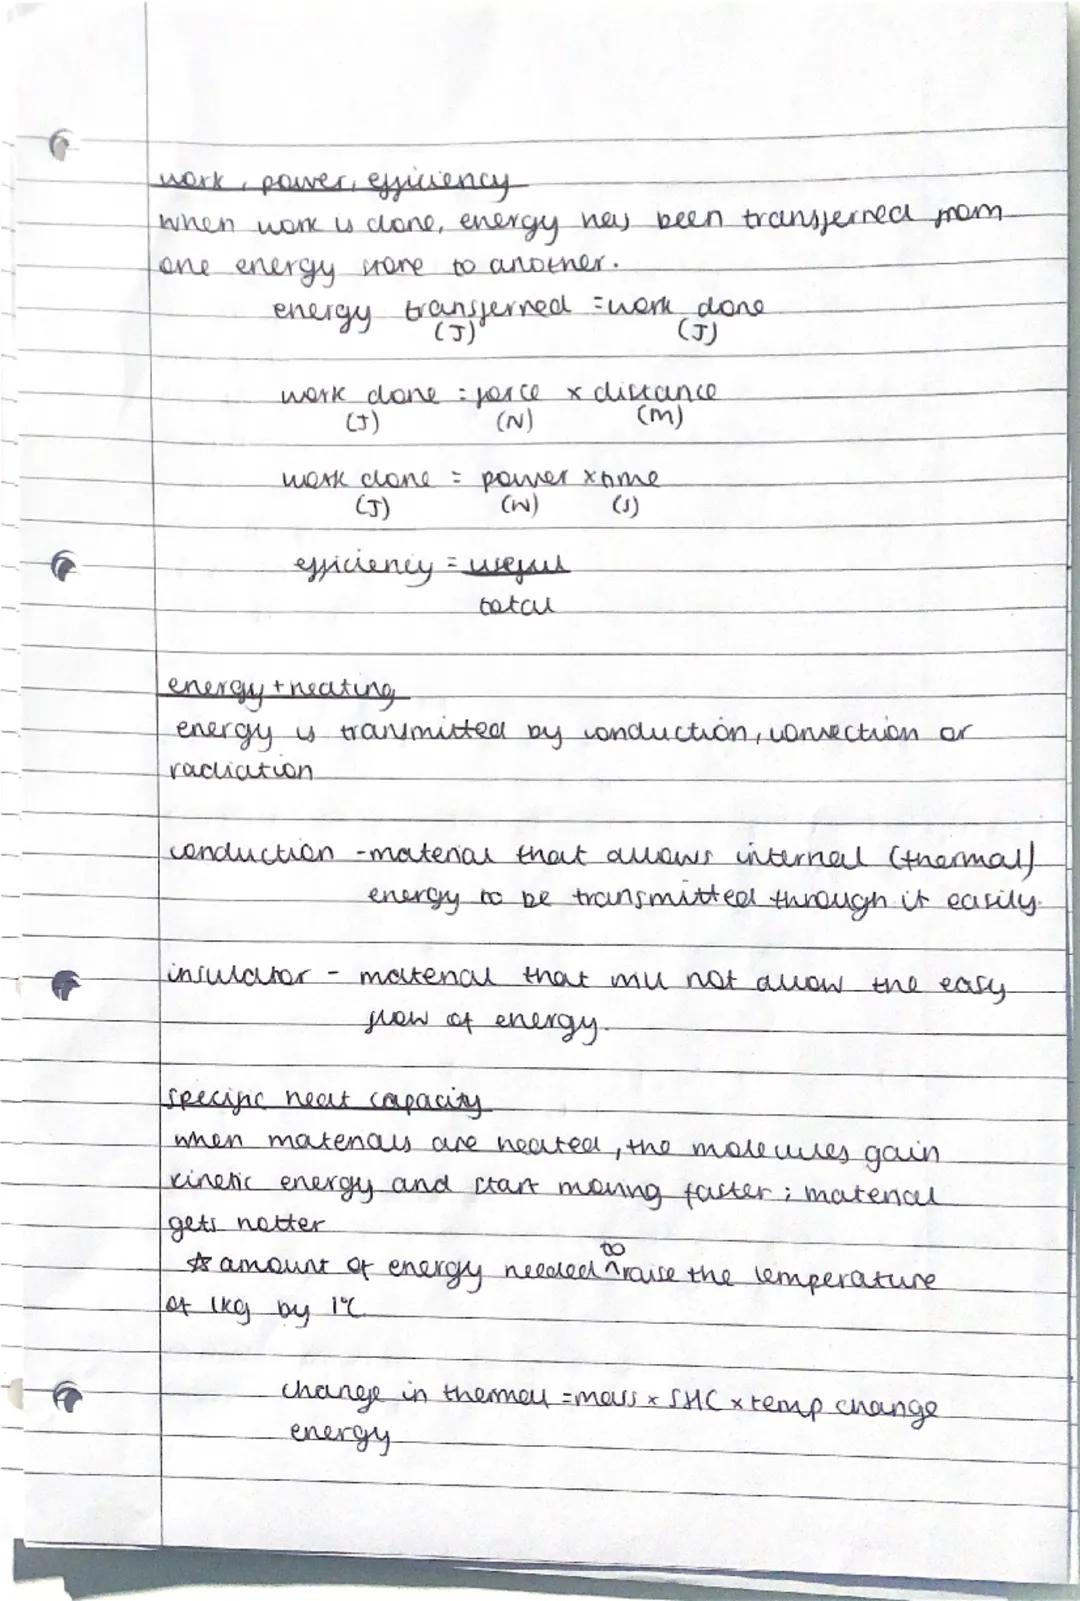 work, power, efficiency
when work is done, energy has been transferred from
one energy store to another.
energy transferred = work done
(J) (J)
work done = force x distance
(J) (N) (M)
work done = power x time
(J) (W) (s)
efficiency = useful
total
energy + heating
energy is transmitted by conduction, convection or
radiation
conduction - material that allows internal (thermal)
energy to be transmitted through it easily.
insulator - material that will not allow the easy
flow of energy.
specific heat capacity
when materials are heated, the molecules gain
kinetic energy and start moving faster; material
gets hotter
to
☆ amount of energy needed ^ raise the temperature
of 1kg by 1°C.
change in thermal = mass x SHC x temp change
energy